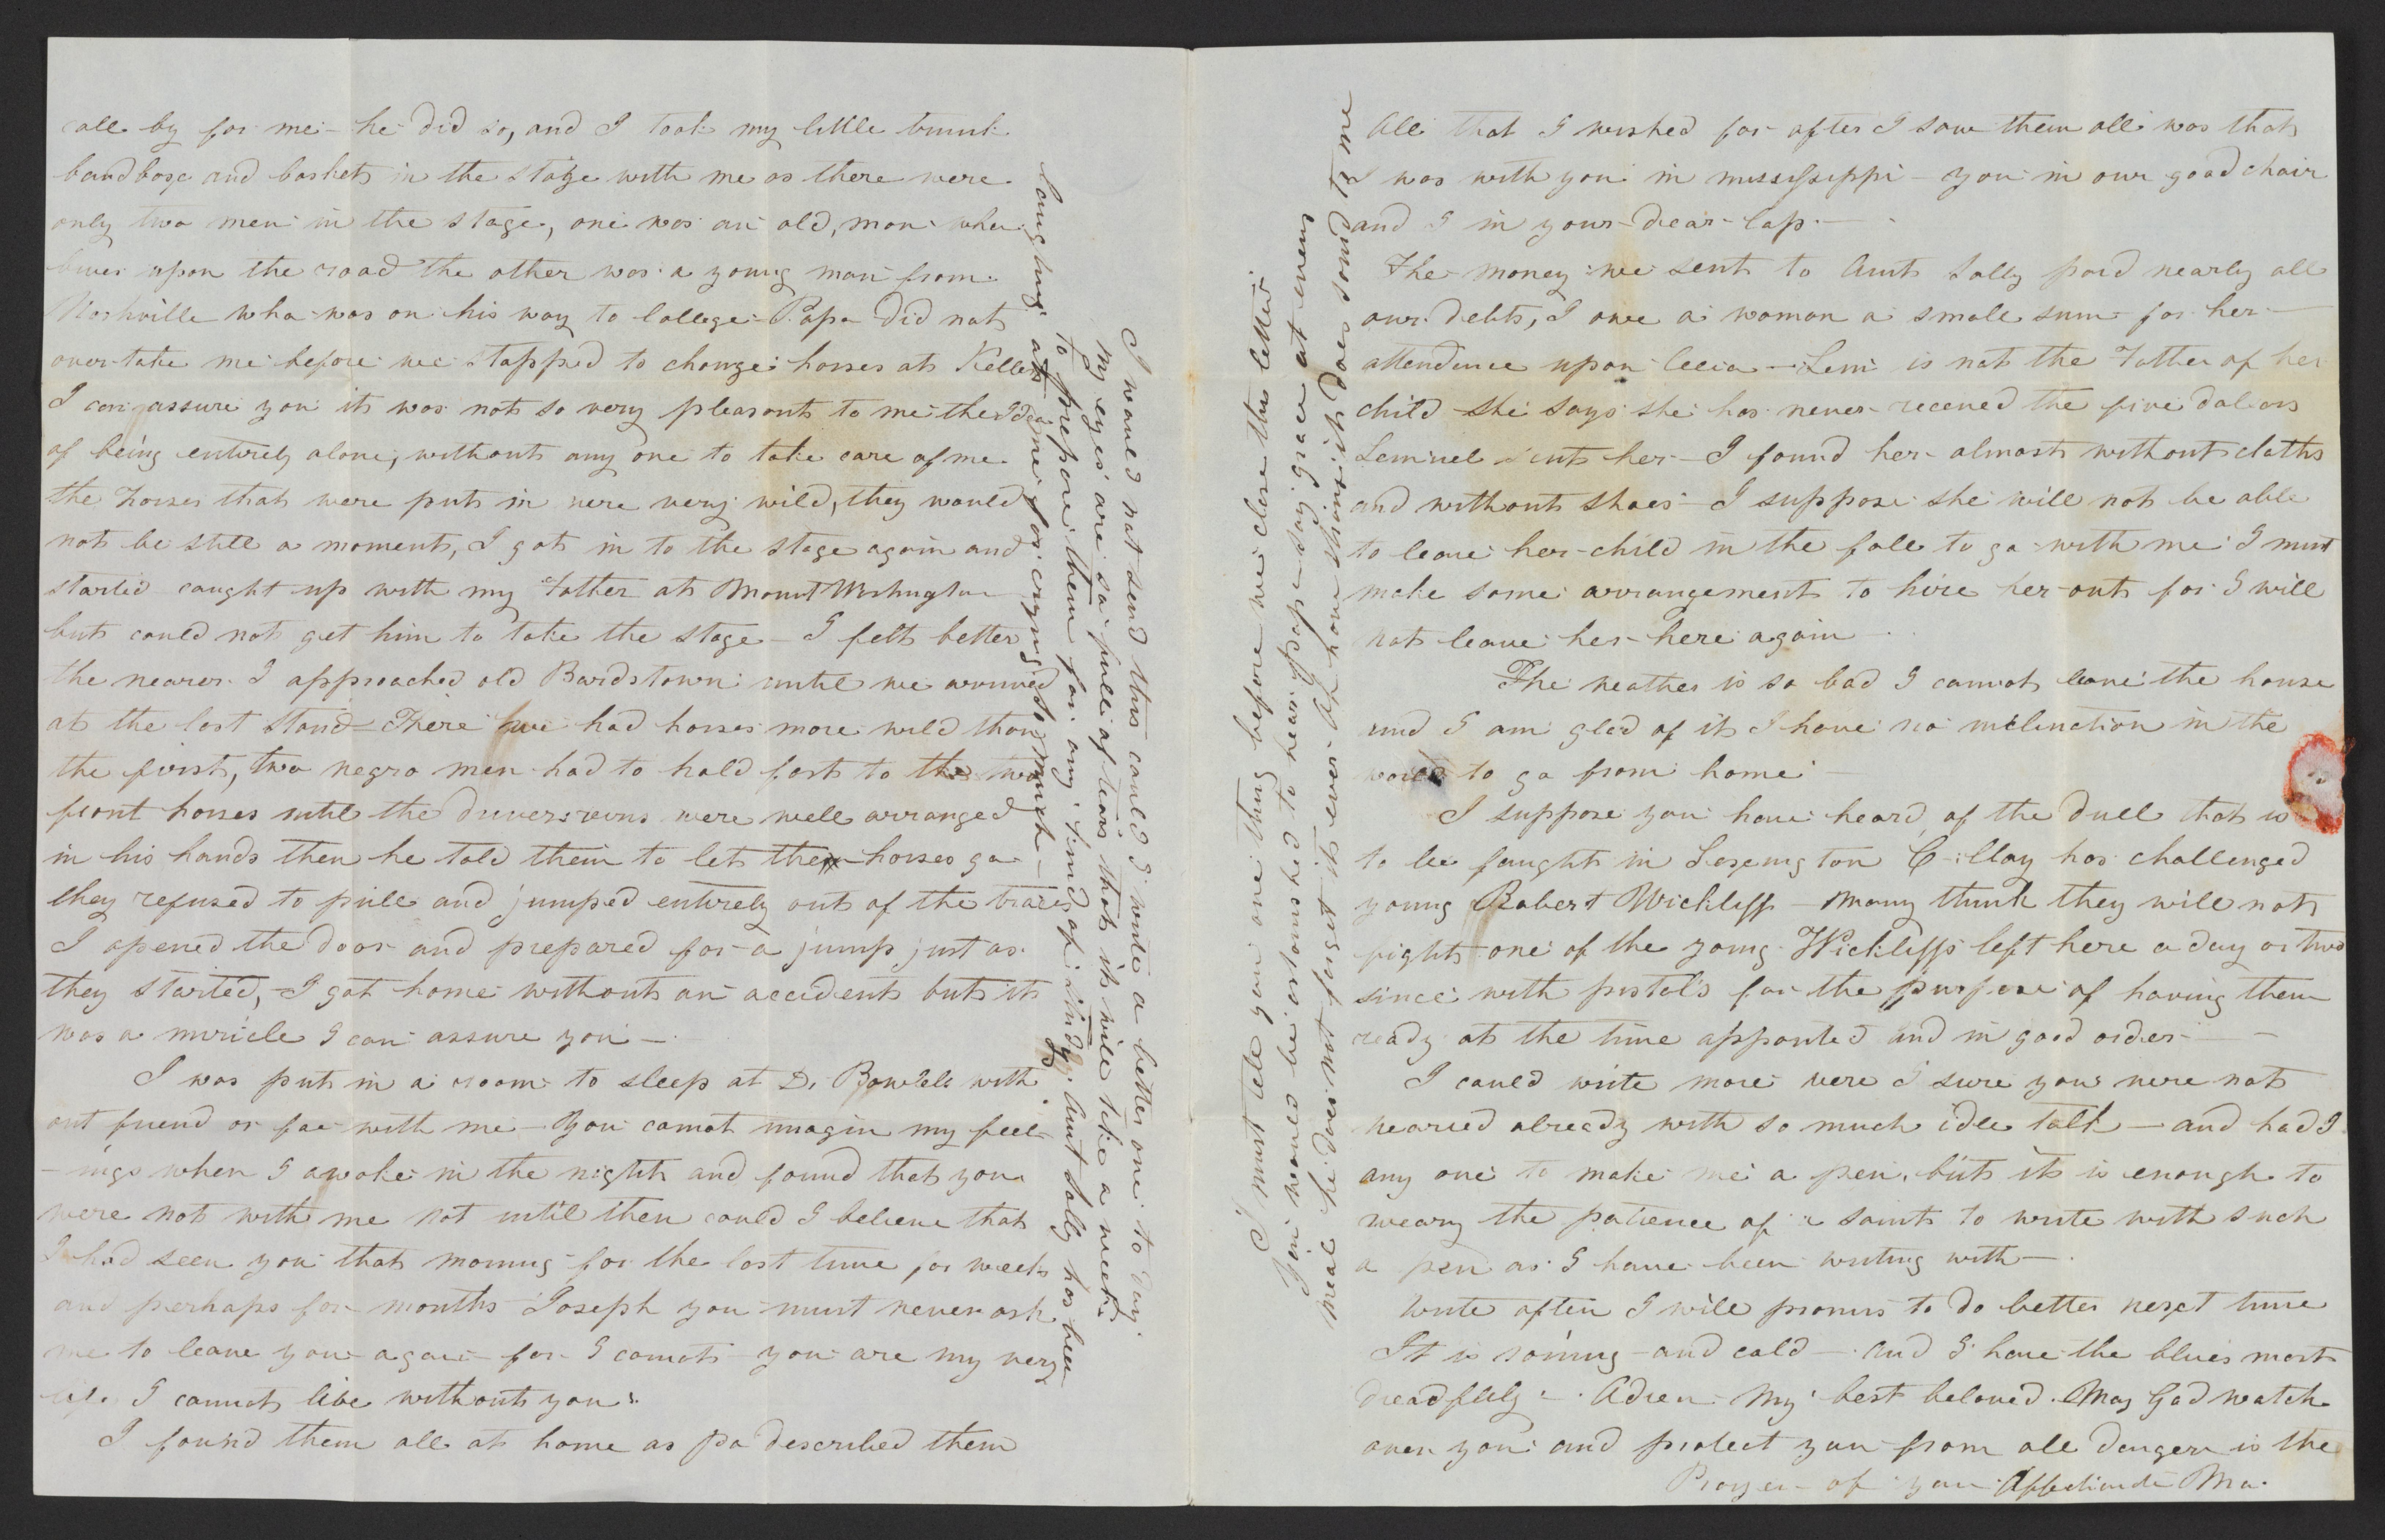 call by for me - he did so, and I took my little trunk
bandboxe and baskets in the stage with me as there were
only two men in the stage, one was an old, man who
lives upon the road the other was a young man from
Nashville who was on his way to College - Papa did not
over take me before we stopped to change horses at Kellers
I can assure you it was not so very pleasant to me the Idea
of being entirely alone, without any one to take care of me
the horses that were put in were very wild, they would
not be still a moment, I got in to the stage again and
started caught up with my Father at Mount Washington
but could not get him to take the stage - I felt better
the nearer I approached old Bardstown until we arrived
at the last stand - There we had horses more wild than
the first, two negro men had to hold fast to the two
front horses until the drivers reins were well arranged
in his hands then he told them to let the horses go
they refused to pull and jumped entirely out of the traces
I opened the door and prepared for a jump just as
they started, - I got home without an accident but it
was a miricle I can assure you -
I was put in a room to sleep at D. with
out friend or foe with me - You cannot imagin my feel
- ings when I awoke in the night and found that you
were not with me not until then could I believe that
I had seen you that morning for the last time for weeks
and perhaps for months Joseph you must never ask
me to leave you again for I cannot - you are my very
life. I cannot live without you.
I found them all at home as pa described them
I would not send this could I write a better one to day
my eyes are so full of tears that it will take a week
to prepare them for any kind of study. Aunt Sally has been
laughing at me for crying so much -
All that I wished for after I saw them all was that
I was with you in mississippi - you in our good chair
and I in your dear lap. -
The money we sent to Aunt Sally paid nearly all
our debts, I owe a woman a small sum for her
attendence upon Celia - Lem is not the Father of her
child - she says she has never receved the five dollars
Lemuel sent her - I found her almost without cloths
and without shoes - I suppose she will not be able
to leave her child in the fall to go with me I must
make some arrangement to hire her out for I will
not leave her here again -
The weather is so bad I cannot leave the house
and I am glad of it I have no inclination in the
world to go from home -
I suppose you have heard, of the dull that is
to be faught in Lexington C. Clay has challenged
young Robert Wickliff - many think they will not
fight one of the young Wickliffs left here a day or two
since with pistols for the purpose of having them
ready at the time apponted and in good order -
I could write more were I sure you were not
wearied already with so much idle talk - and had I
any one to make me a pen, but it is enough to
weary the patience of a saint to write with such
a pen as I have been writing with -
Write often I will promis to do better next time
It is raining and cold - and I have the blues most
dreadfully - Adieu My best beloved. May God watch
over you and protect you from all danger is the
Prayer of your Affectionate Ma.
I must tell you one thing before we close this letter
You would be astonished to hear papa say grace at every
meal he does not forget it ever Oh how strange it does sound to me